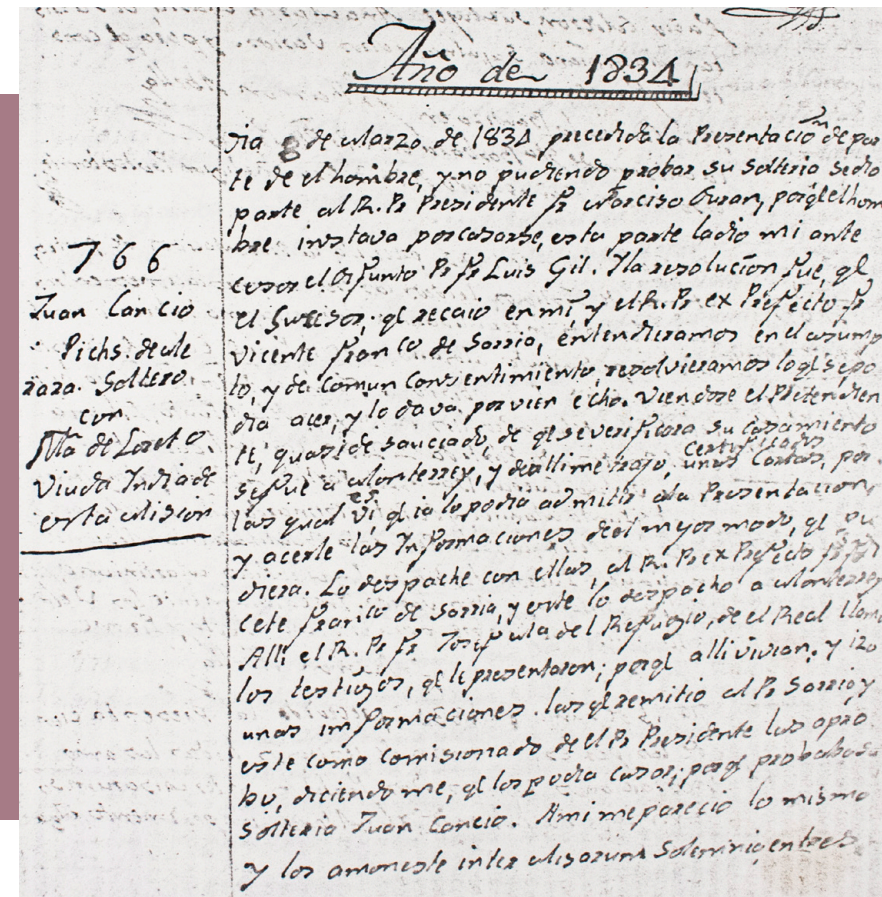 Año de 1834
Dia 8 de Marzo de 1834 precedida la Presentacion de par
te de el hombre, y no pudiendo probar su solteria se dio
parte al R. Pe Presidente fr Narciso Duran, porqe el hom
bre instava por casarse, esta parte la dio mi ante
cesor el Difunto Pe fr Luis Gil. Y la resolucion fue, qe
el Sucesor, qe recaio en mi y el R. Pe ex Prefecto fr
Vicente Franco de Sarria, entendieramos en el asump
to, y de comun consentimiento, resolvieramos lo qe se po
dia acer, y lo dava por vien echo. Viendose el Pretendien
te, quasi desauciado, de qe se verificara su casamiento
se fue a Monterrey, y de alli me trajo, unas Certificados Cartas, por
las quales vi qe ia lo podia admitir a la Presentacion,
y acerle las Informaciones de el mejor modo, qe pu
diera. Lo despache con ellas, al R. Pe ex Prefecto fr
cete Franco de Sarria, y este lo despacho a Monterrey
Alli el R. Pe fr Josef Ma del Refugio, de el Real llamo
los testigos, qe le presentaron; porqe alli vivian. y izo
unas informaciones. las qe remitio al Pe Sarria, y
este como Comisionado de el Pe Presidente las apro
bo, diciendo me, qe los podia casar; porqe probaba su
solteria Juan Cancio. A mi me parecio lo mismo
y los amoneste inter Misarum Solemnia entres
766
Juan Cancio
Pichs. de Ale
zara. Soltero
con
Ma de Loreto,
Viuda India de
esta Mision